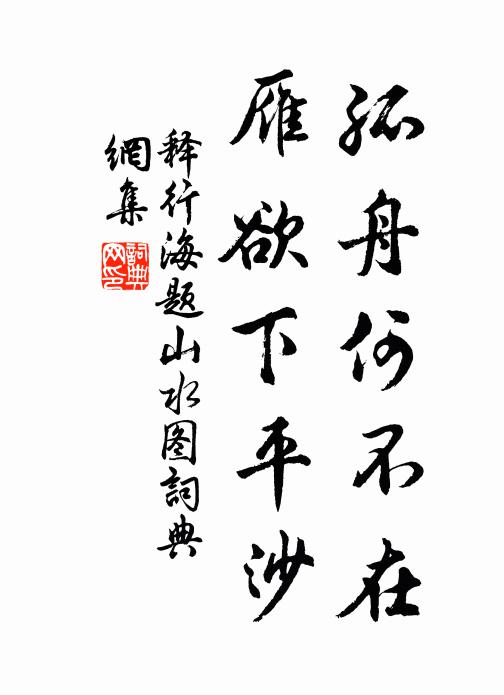 孤舟何不在
雁欲下平沙
释行海题山水图詞典
網集
詞典
网印